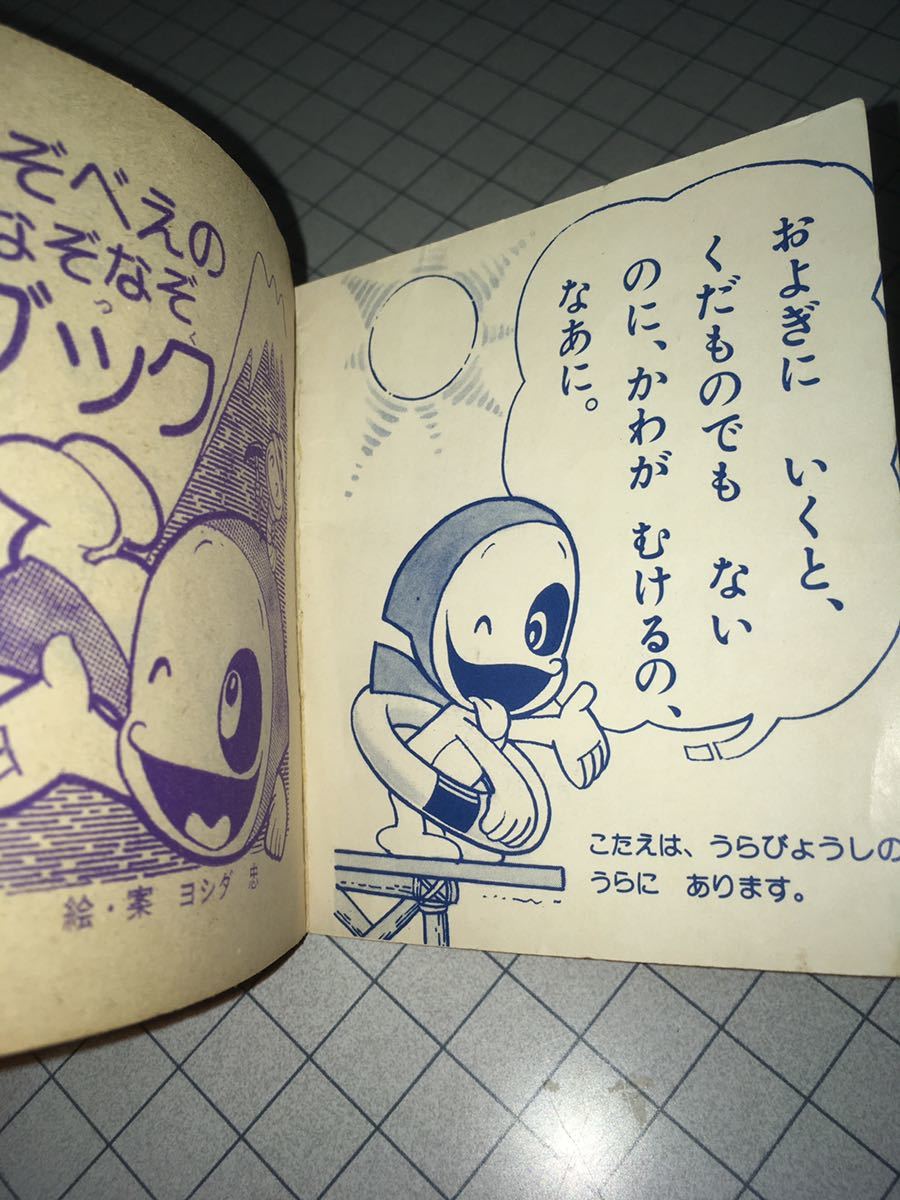 ぞべえの
なぞなぞ
ブック
っ く
絵・案 ヨシダ 忠
およぎに いくと、
くだものでも ない
のに、かわが むけるの、
なあに。
こたえは、うらびょうしの
うらに あります。